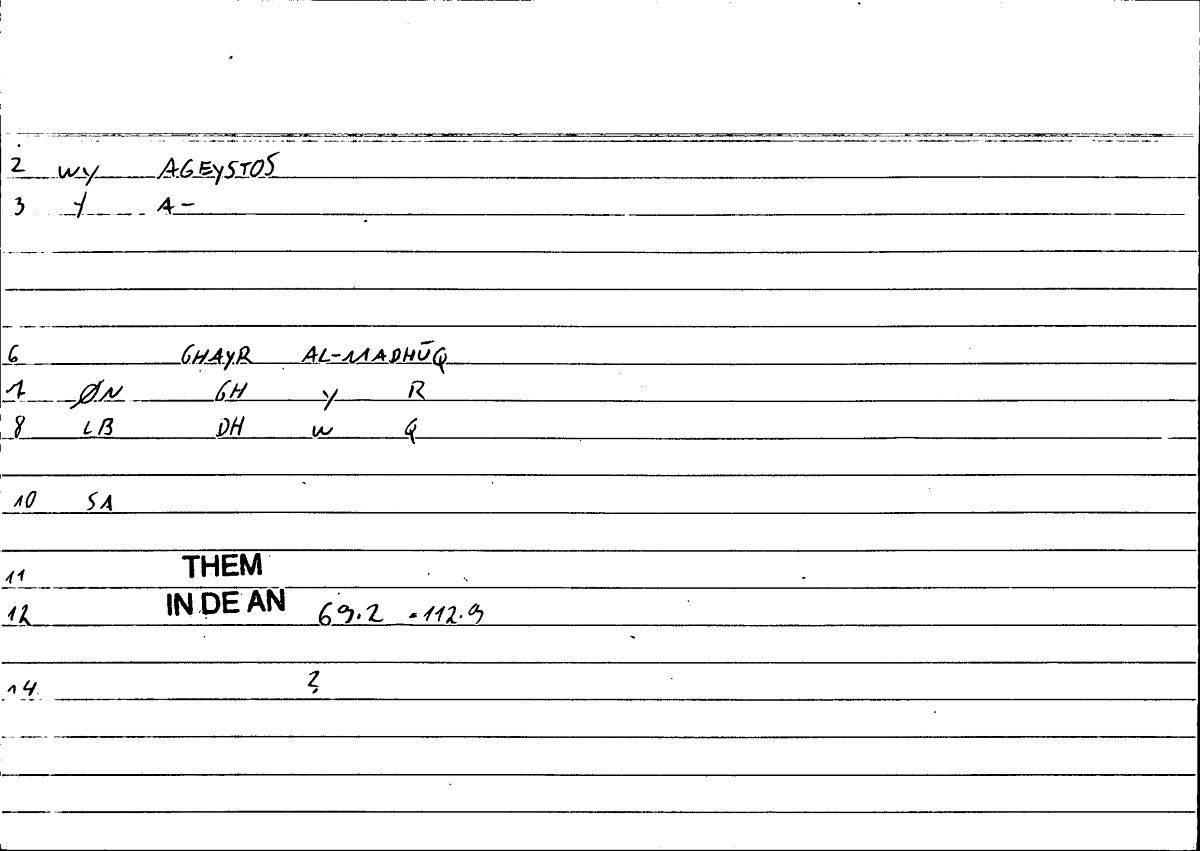 2 WY AGEYSTOS
3 Y A-
6 GHAYR AL-MADHŪQ
7 ØN GH Y R
8 LB DH W Q
10 SA
11 THEM
12 IN DE AN 69.2 - 112.9
14 ?